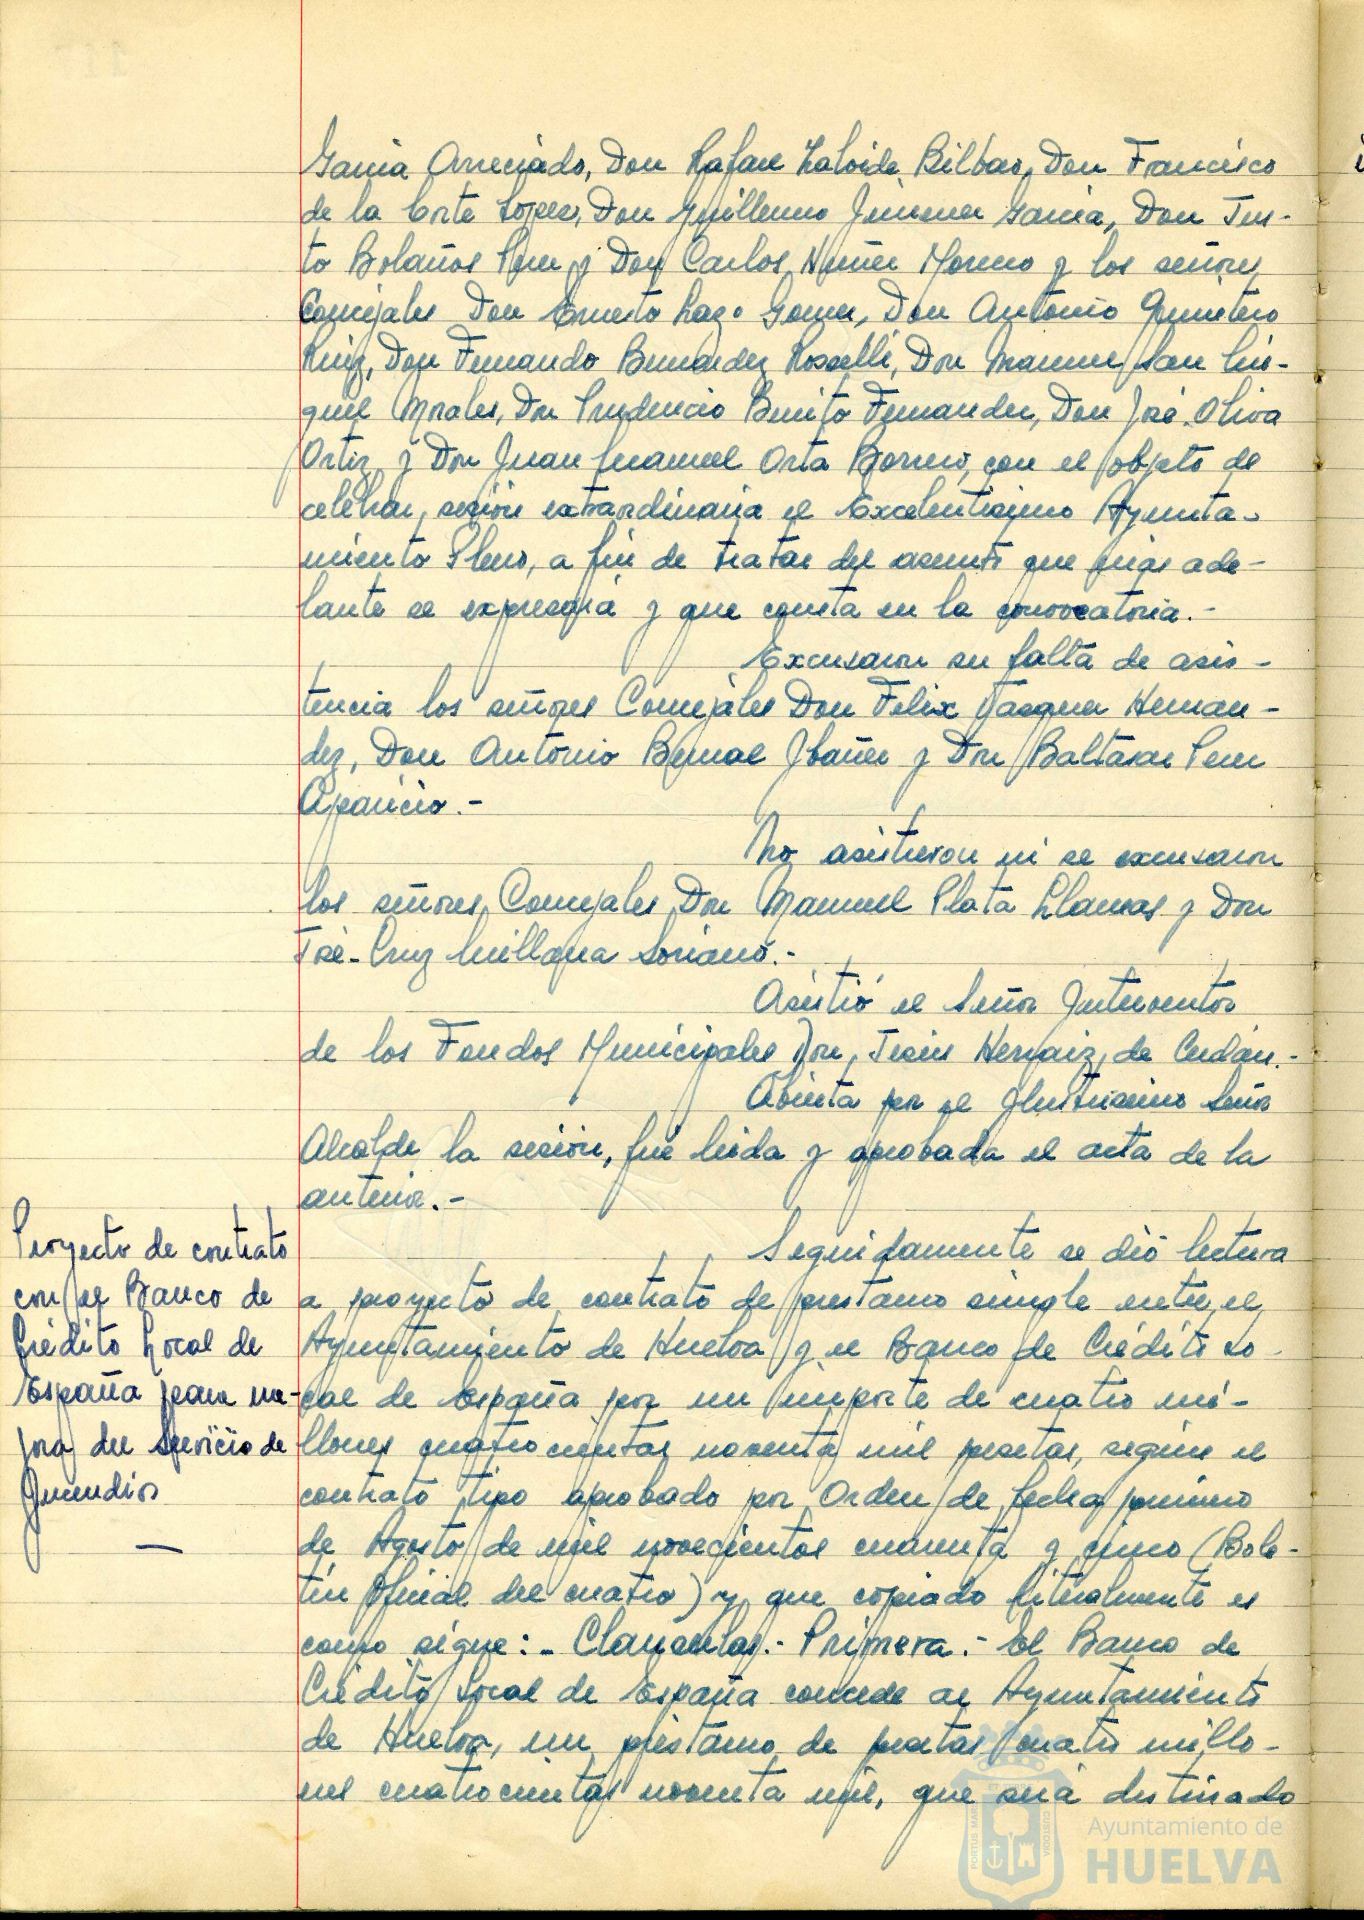 García Arreciado, Don Rafael Zaloide Bilbao, Don Francisco
de la Corte López, Don Guillermo Jimenez García, Don Jus-
to Bolaños Perez y Don Carlos Nuñez Moreno y los señores
Concejales Don Ernesto Lazo Gomez, Don Antonio Quintero
Ruiz, Don Fernando Bermudez Rosselli, Don Manuel San Mi-
guel Morales, Don Prudencio Benito Fernandez, Don José Oliva
Ortiz y Don Juan Manuel Orta Borrero, con el objeto de
celebrar sesión extraordinaria el Excelentisimo Ayunta-
miento Pleno, a fin de tratar del asunto que más ade-
lante se expresará y que consta en la convocatoria.-
Excusaron su falta de asis-
tencia los señores Concejales Don Felix Vazquez Hernan-
dez, Don Antonio Bernal Ibañez y Don Baltasar Perez
Aparicio.-
No asistieron ni se excusaron
los señores Concejales Don Manuel Plata Llamas y Don
José-Cruz Millana Soriano.-
Asistió el Señor Interventor
de los Fondos Municipales Don Jesús Hernaiz de
Abierta por el Ilustrisimo Señor
Alcalde la sesión, fué leida y aprobada el acta de la
anterior.-
Proyecto de contrato
con el Banco de
Crédito Local de
España para me-
jora del Servicio de
Incendios
Seguidamente se dió lectura
a proyecto de contrato de prestamo simple entre el
Ayuntamiento de Huelva y el Banco de Crédito Lo-
cal de España por un importe de cuatro mi-
llones cuatrocientas noventa mil pesetas, según el
contrato tipo aprobado por Orden de fecha primero
de Agosto de mil novecientos cuarenta y cinco (Bole-
tín Oficial del cuatro) y que copiado literalmente es
como sigue:- Clausulas.- Primera.- El Banco de
Crédito Local de España concede al Ayuntamiento
de Huelva, un préstamo de pesetas cuatro millo-
nes cuatrocientas noventa mil, que será destinado
PORTUS MARIS
CUSTODIA
Ayuntamiento de
HUELVA